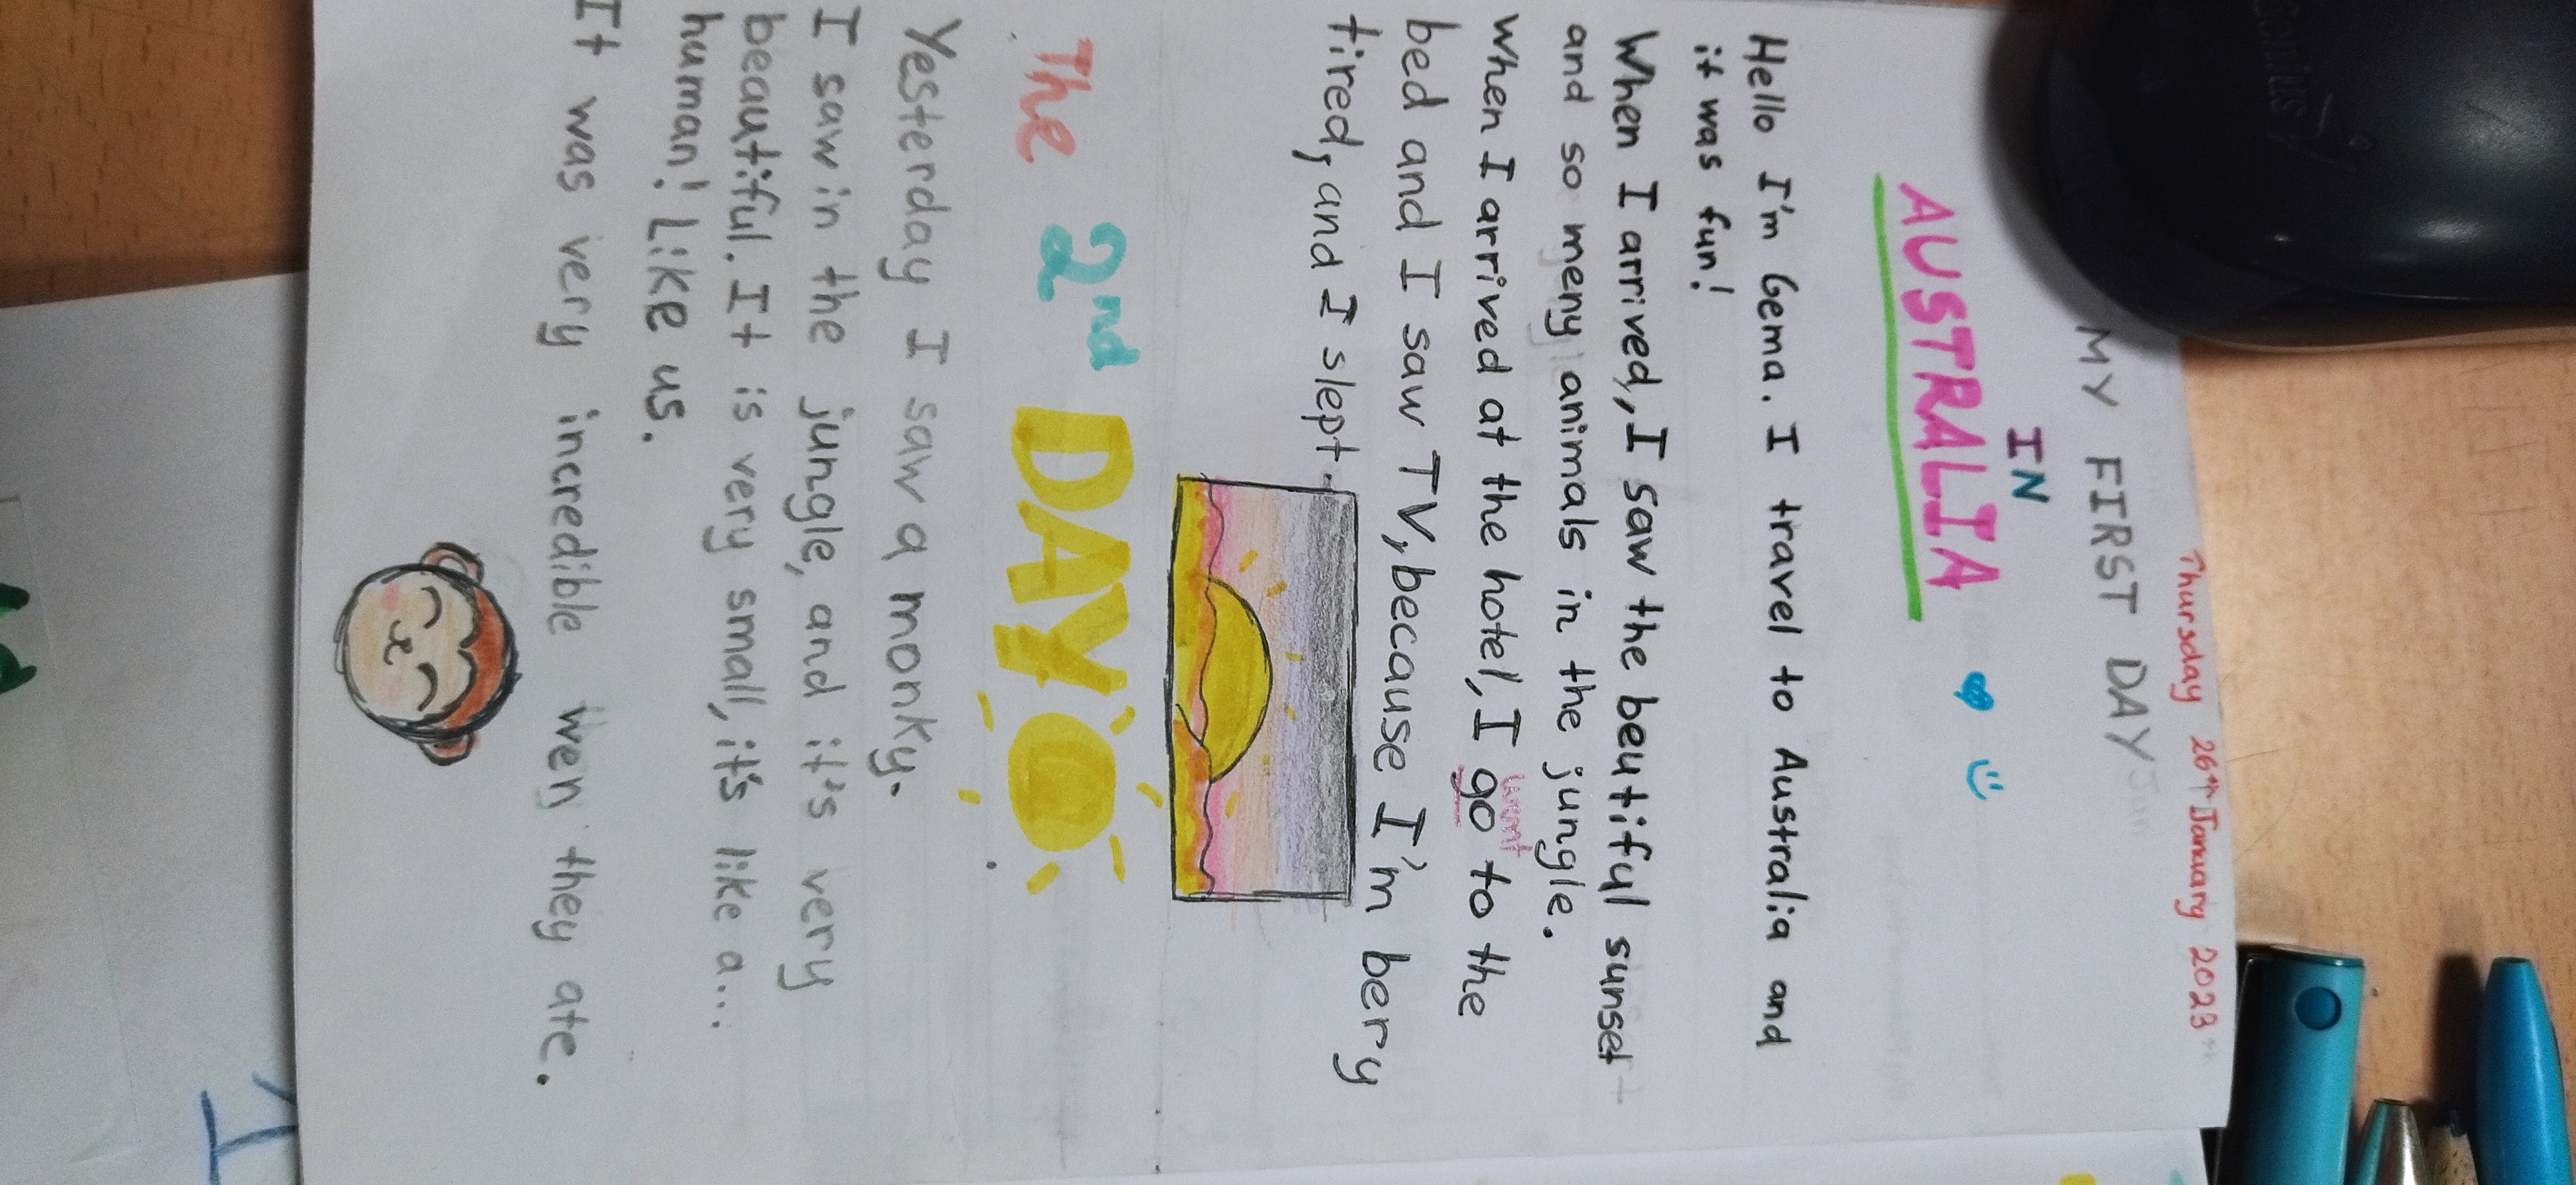 Thursday 26th January 2023
MY FIRST DAY
IN
AUSTRALIA
Hello I'm Gema. I travel to Australia and
it was fun!
When I arrived, I saw the beutiful sunset
and so meny animals in the jungle.
went
when I arrived at the hotel, I go to the
bed and I saw TV, because I'm bery
tired, and I slept.
The 2nd DAY
Yesterday I saw a monky.
I saw in the jungle, and it's very
beautiful. It is very small, it's like a...
human! Like us.
It was very incredible wen they ate.
Genius